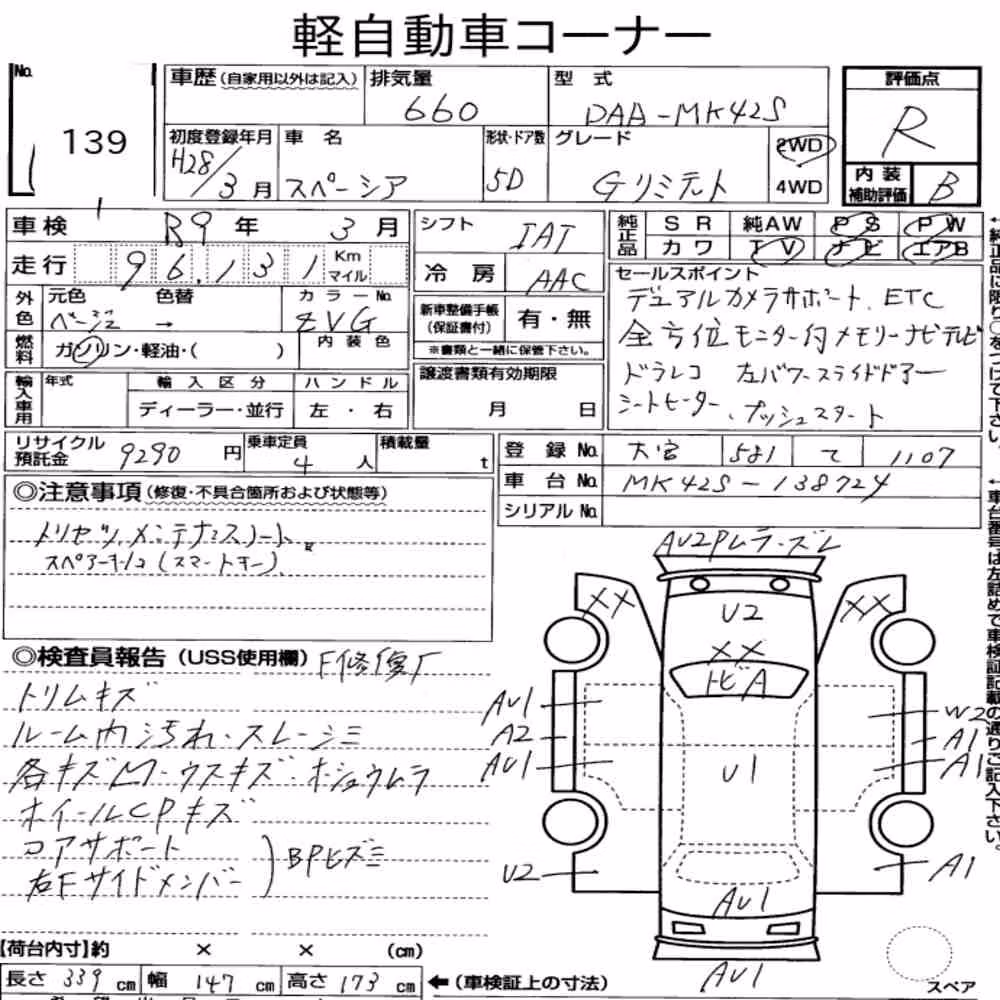 軽自動車コーナー
No. 139
車歴 (自家用以外は記入) 排気量 660 型式 DAA-MK42S 評価点 R
初度登録年月 H28/3月 車名 スペーシア 形状・ドア数 5D グレード Gリミテット 2WD 4WD
内装補助評価 B
車検 R9年 3月 シフト IAT 純正品 SR 純AW PS PW
カワ TV ナビ エアB
走行 96,131 Km マイル 冷房 AAC
外色 元色 色替 カラーNo.
ベージュ → ZVG
内装色
燃料 ガソリン・軽油・( )
新車整備手帳(保証書付) 有・無
※書類と一緒に保管下さい。
輸入車用 年式 輸入区分 ハンドル
ディーラー・並行 左・右
譲渡書類有効期限
月 日
セールスポイント
デュアルカメラサポート、ETC
全方位モニター付メモリーナビテレビ
ドラレコ 左パワースライドドアー
シートヒーター、プッシュスタート
リサイクル預託金 9290円 乗車定員 4人 積載量 t
登録No. 大宮 581 て 1107
車台No. MK42S-138724
シリアルNo.
◎注意事項 (修復・不具合箇所および状態等)
トリセツ、メンテナンスノート、
スペアーキー2(スマートキー)、
◎検査員報告 (USS使用欄) F修復歴
トリムキズ
ルーム内汚れ・スレ・シミ
各キズ凹・ウスキズ・ホシュウムラ
ホイールCPキズ
コアサポート
右Fサイドメンバー ) BPヒズミ
AU2Pムラ・ズレ
XX XX
U2
XX
トビA
AU1 W2
A2 A1
AU1 A1
U1
U2 A1
AU1
AU1
スペア
【荷台内寸】約 × × (cm)
長さ 339 cm 幅 147 cm 高さ 173 cm ←(車検証上の寸法)
←純正品に限り○をつけて下さい。
←車台番号は左詰めで車検証記載の通りご記入下さい。